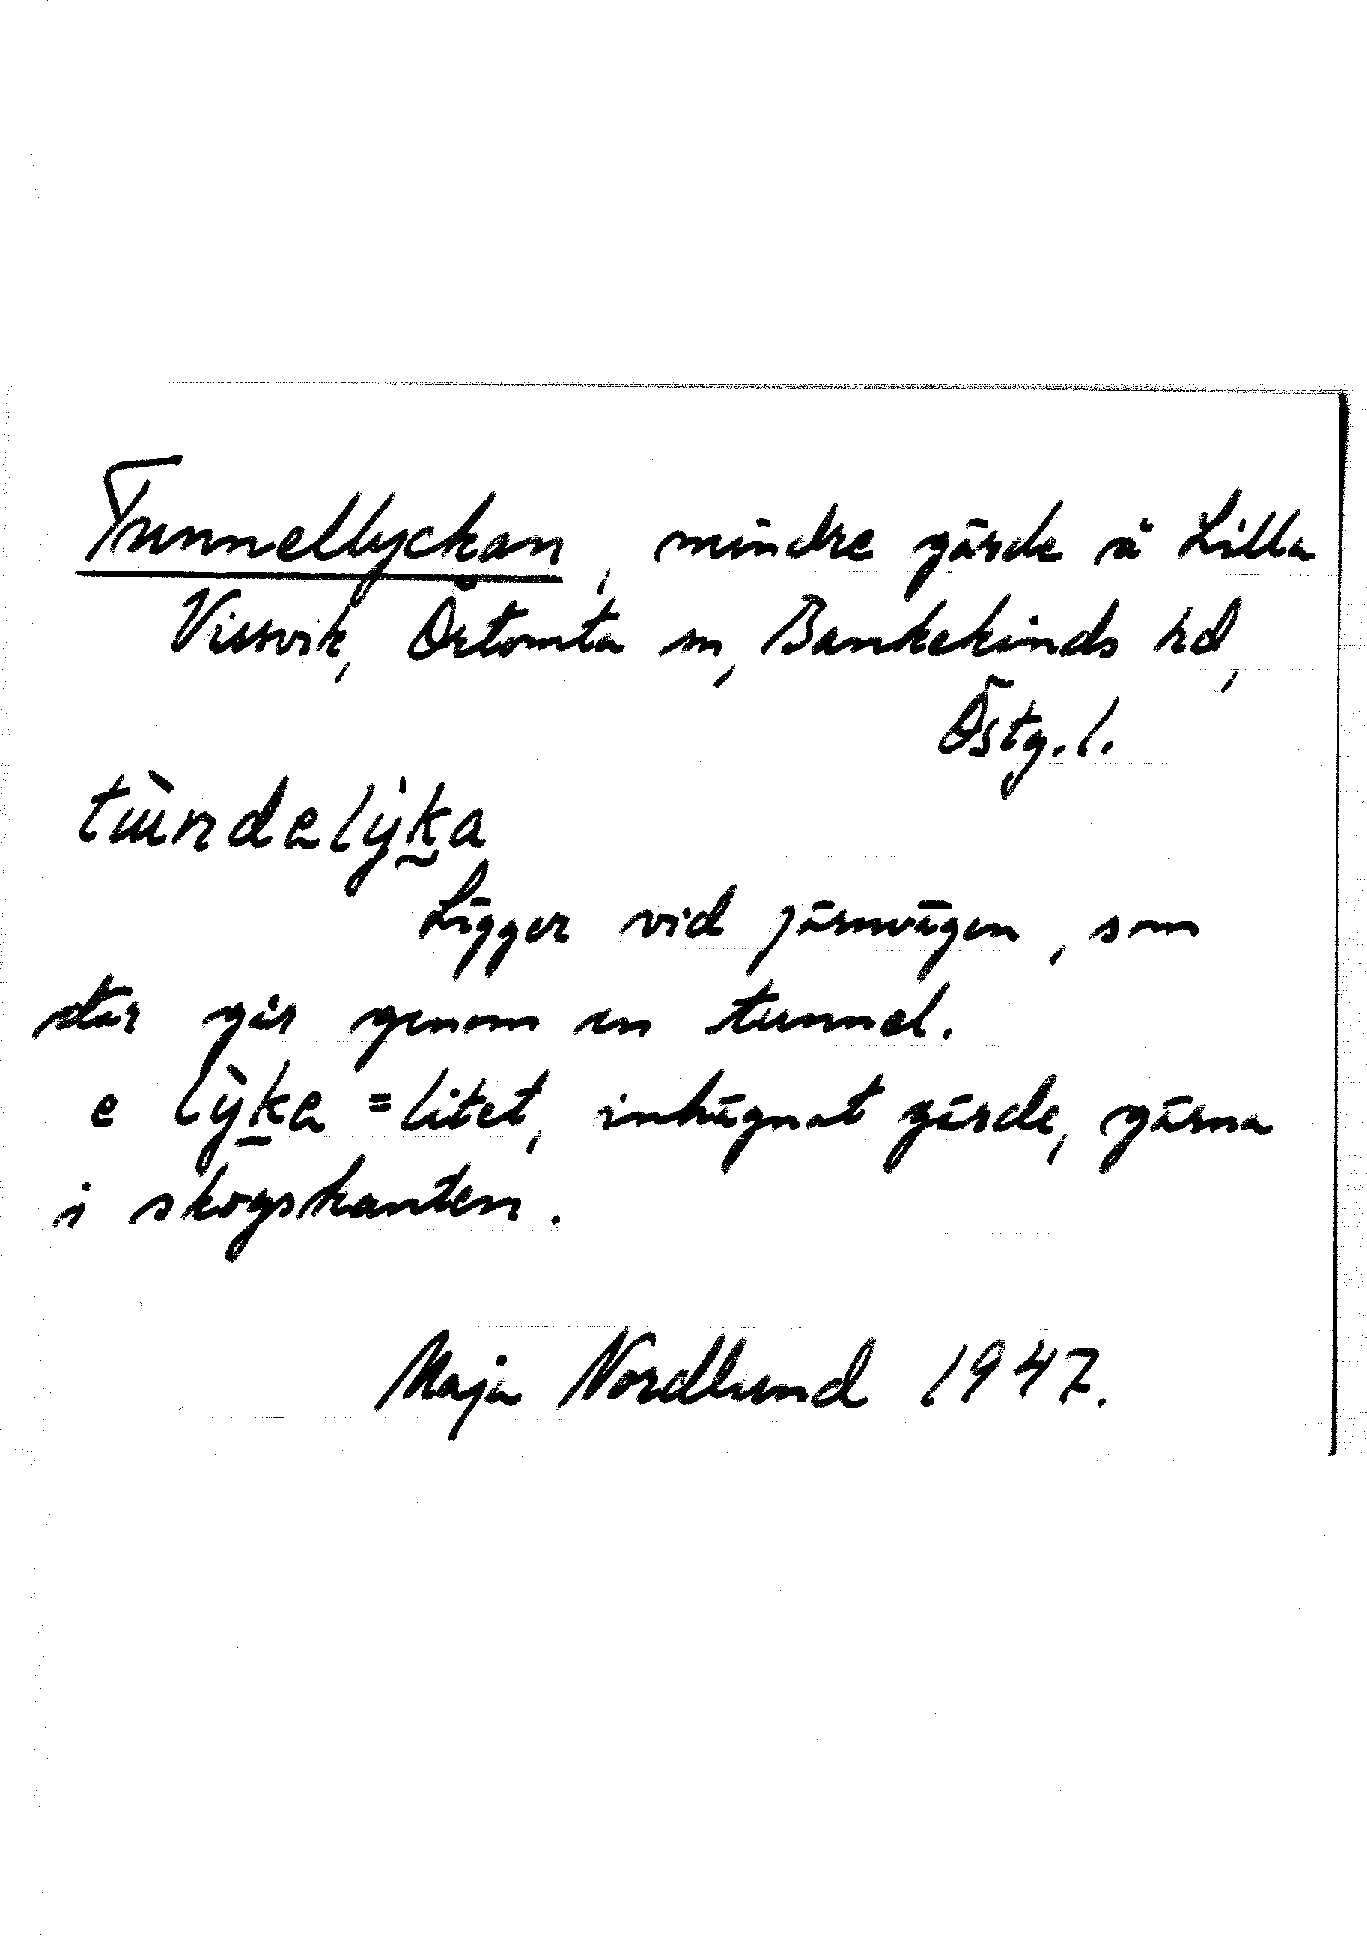 Tunnellyckan, mindre gärde å Lilla
Vissvik, Östomta sn, Bankekinds hd,
Östg. l.
tùndelýka
Ligger vid järnvägen, som
där går genom en tunnel.
e lỳka = litet, inhägnat gärde, gärna
i skogskanten.
Maja Nordlund 1947.